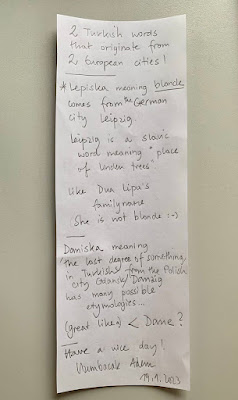 2 Turkish words
that originate from
2 European cities!
* Lepiska meaning blonde
comes from the German
city Leipzig.
Leipzig is a slavic
word meaning "place
of linden trees"
like Dua Lipa's
family name
(She is not blonde :-)
Damiska meaning
"the last degree of something
in Turkish" from the Polish
city Gdansk/Danzig
has many possible
etymologies...
(great likes) < Dane?
Have a nice day!
19.1.2023